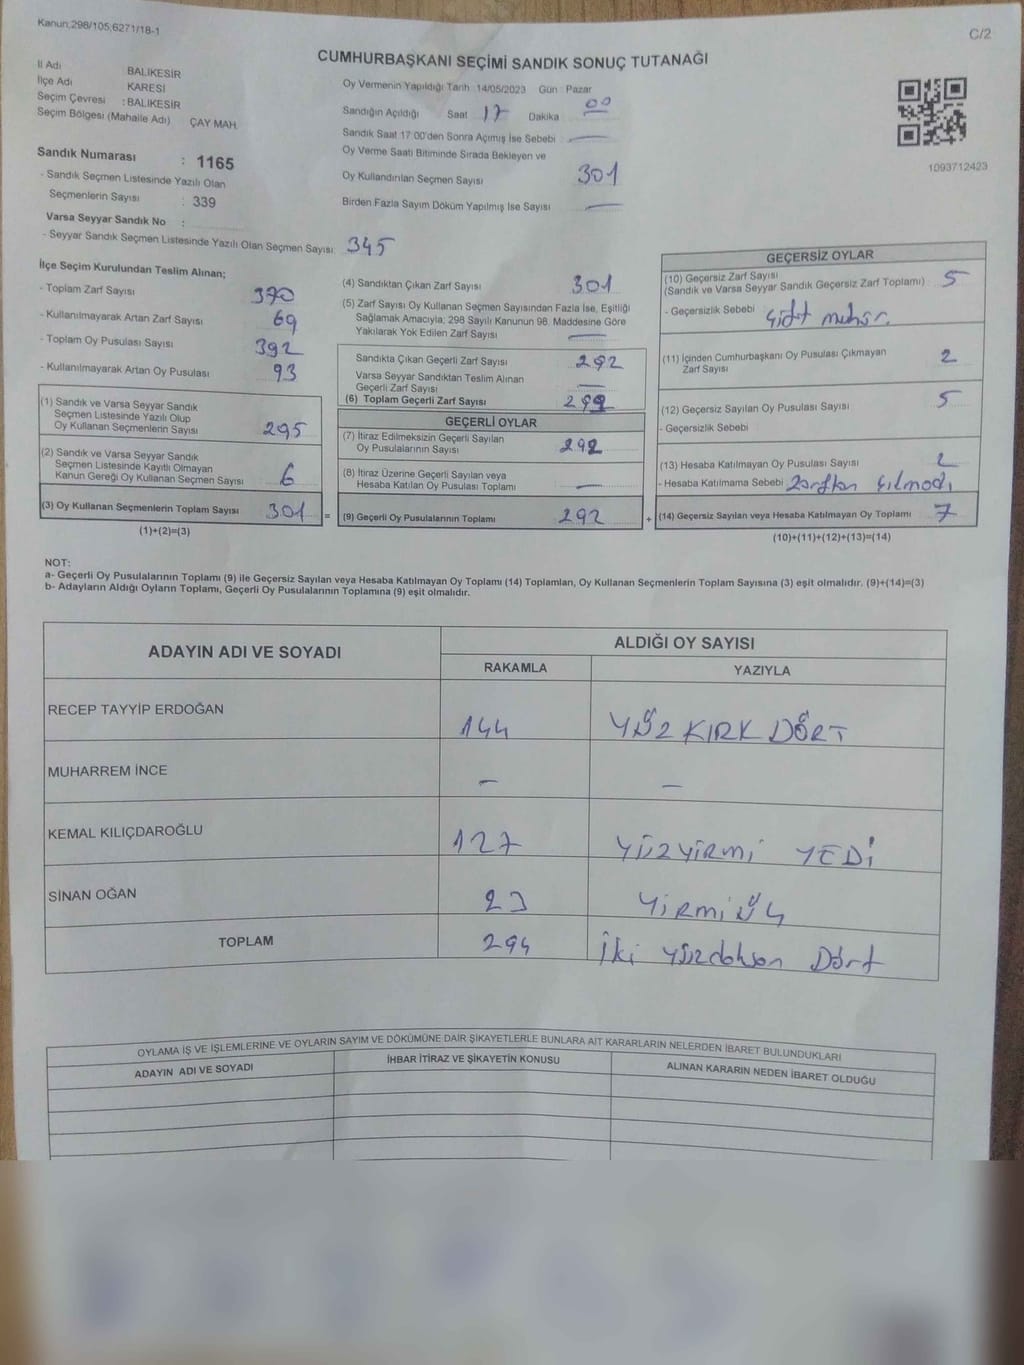 Kanun,298/105,6271/18-1
C/2
CUMHURBAŞKANI SEÇİMİ SANDIK SONUÇ TUTANAĞI
İl Adı BALIKESİR
İlçe Adı KARESİ
Seçim Çevresi : BALIKESİR
Seçim Bölgesi (Mahalle Adı) ÇAY MAH.
Sandık Numarası : 1165
- Sandık Seçmen Listesinde Yazılı Olan
Seçmenlerin Sayısı : 339
Varsa Seyyar Sandık No :
- Seyyar Sandık Seçmen Listesinde Yazılı Olan Seçmen Sayısı: 345
Oy Vermenin Yapıldığı Tarih 14/05/2023 Gün Pazar
Sandığın Açıldığı Saat 17 Dakika 00
Sandık Saat 17:00'den Sonra Açımış İse Sebebi —
Oy Verme Saati Bitiminde Sırada Bekleyen ve
Oy Kullandırılan Seçmen Sayısı 301
Birden Fazla Sayım Döküm Yapılmış İse Sayısı —
1093712423
İlçe Seçim Kurulundan Teslim Alınan;
- Toplam Zarf Sayısı 370
- Kullanılmayarak Artan Zarf Sayısı 69
- Toplam Oy Pusulası Sayısı 392
- Kullanılmayarak Artan Oy Pusulası 93
(1) Sandık ve Varsa Seyyar Sandık
Seçmen Listesinde Yazılı Olup
Oy Kullanan Seçmenlerin Sayısı 295
(2) Sandık ve Varsa Seyyar Sandık
Seçmen Listesinde Kayıtlı Olmayan
Kanun Gereği Oy Kullanan Seçmen Sayısı 6
(3) Oy Kullanan Seçmenlerin Toplam Sayısı 301 =
(1)+(2)=(3)
(4) Sandıktan Çıkan Zarf Sayısı 301
(5) Zarf Sayısı Oy Kullanan Seçmen Sayısından Fazla İse, Eşitliği
Sağlamak Amacıyla; 298 Sayılı Kanunun 98. Maddesine Göre
Yakılarak Yok Edilen Zarf Sayısı —
Sandıkta Çıkan Geçerli Zarf Sayısı 292
Varsa Seyyar Sandıktan Teslim Alınan
Geçerli Zarf Sayısı —
(6) Toplam Geçerli Zarf Sayısı
GEÇERLİ OYLAR
(7) İtiraz Edilmeksizin Geçerli Sayılan
Oy Pusulalarının Sayısı 292
(8) İtiraz Üzerine Geçerli Sayılan veya
Hesaba Katılan Oy Pusulası Toplamı —
(9) Geçerli Oy Pusulalarının Toplamı 292 +
GEÇERSİZ OYLAR
(10) Geçersiz Zarf Sayısı 5
(Sandık ve Varsa Seyyar Sandık Geçersiz Zarf Toplamı)
- Geçersizlik Sebebi Çift mühür.
(11) İçinden Cumhurbaşkanı Oy Pusulası Çıkmayan
Zarf Sayısı 2
(12) Geçersiz Sayılan Oy Pusulası Sayısı 5
- Geçersizlik Sebebi
(13) Hesaba Katılmayan Oy Pusulası Sayısı 2
- Hesaba Katılmama Sebebi Zarftan Çılmadı
(14) Geçersiz Sayılan veya Hesaba Katılmayan Oy Toplamı 7
(10)+(11)+(12)+(13)=(14)
NOT:
a- Geçerli Oy Pusulalarının Toplamı (9) ile Geçersiz Sayılan veya Hesaba Katılmayan Oy Toplamı (14) Toplamları, Oy Kullanan Seçmenlerin Toplam Sayısına (3) eşit olmalıdır. (9)+(14)=(3)
b- Adayların Aldığı Oyların Toplamı, Geçerli Oy Pusulalarının Toplamına (9) eşit olmalıdır.
ADAYIN ADI VE SOYADI
ALDIĞI OY SAYISI
RAKAMLA YAZIYLA
RECEP TAYYİP ERDOĞAN 144 YÜZ KIRK DÖRT
MUHARREM İNCE — —
KEMAL KILIÇDAROĞLU 127 YÜZYİRMİ YEDİ
SİNAN OĞAN 23 YİRMİ ÜÇ
TOPLAM 294 İki yüzdoksan Dört
OYLAMA İŞ VE İŞLEMLERİNE VE OYLARIN SAYIM VE DÖKÜMÜNE DAİR ŞİKAYETLERLE BUNLARA AİT KARARLARIN NELERDEN İBARET BULUNDUKLARI
ADAYIN ADI VE SOYADI İHBAR İTİRAZ VE ŞİKAYETİN KONUSU ALINAN KARARIN NEDEN İBARET OLDUĞU